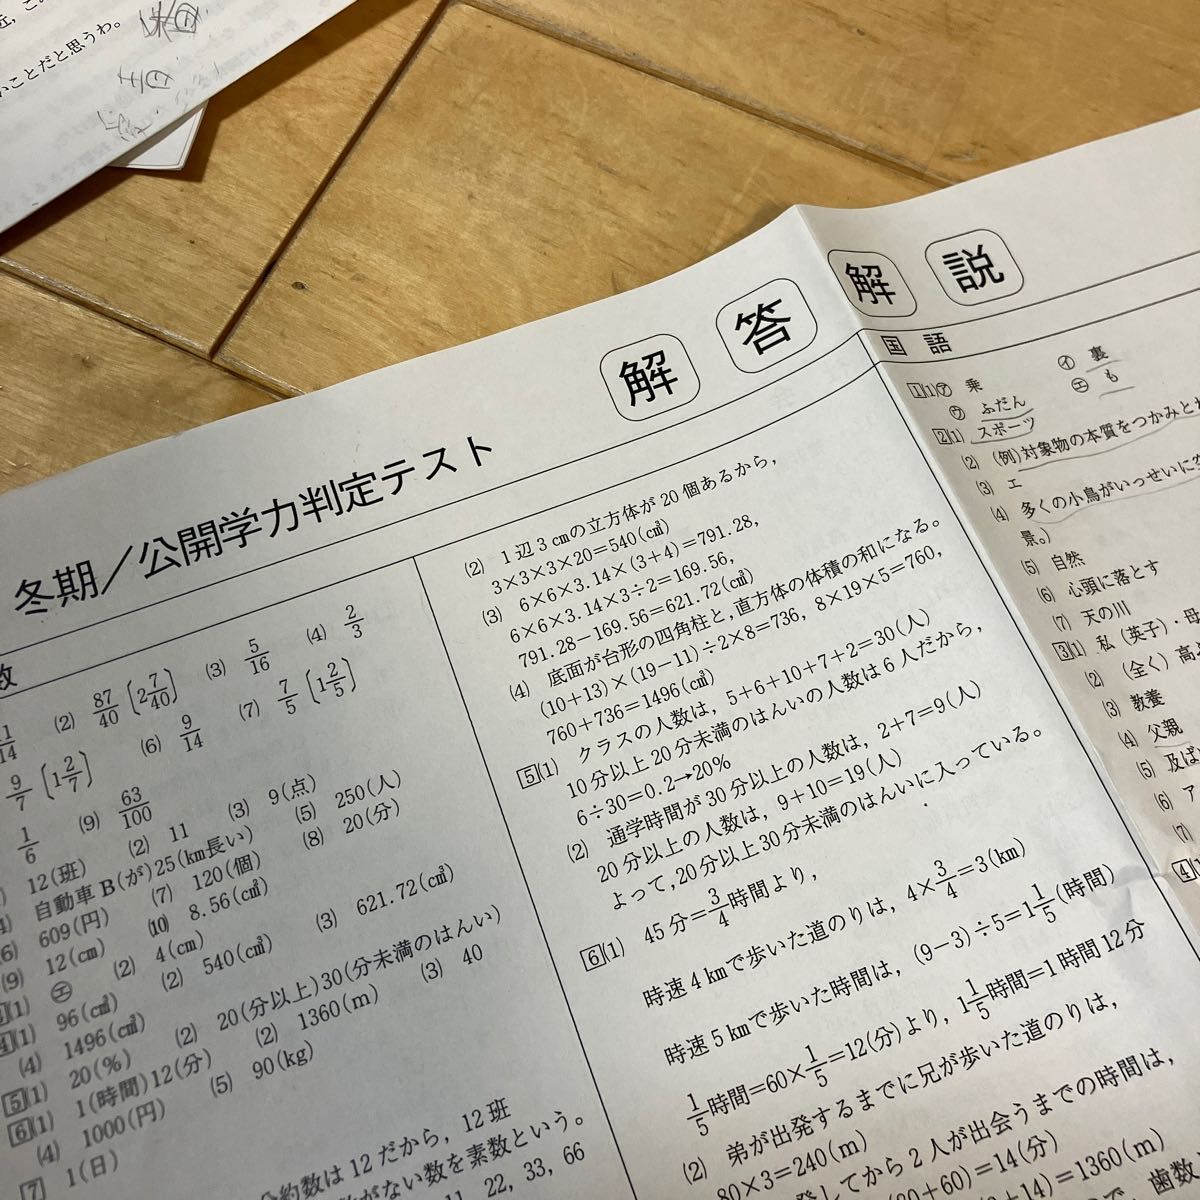 いことだと思うわ。
冬期/公開学力判定テスト
解答
解説
数
(2) 87/40〔2 7/40〕 (3) 5/16 (4) 2/3
9/7〔1 2/7〕 (6) 9/14 (7) 7/5〔1 2/5〕
1/6 (9) 63/100
12(班) (2) 11 (3) 9(点)
自動車B(が)25(km長い) (5) 250(人)
(6) 609(円) (7) 120(個) (8) 20(分)
(9) 12(cm) (10) 8.56(cm²)
(1) ㋓ (2) 4(cm)
4(1) 96(cm²) (2) 540(cm³) (3) 621.72(cm³)
(4) 1496(cm³)
5(1) 20(%) (2) 20(分以上)30(分未満のはんい)
6(1) 1(時間)12(分) (2) 1360(m) (3) 40
(4) 1000(円) (5) 90(kg)
7 1(日)
公約数は12だから，12班
がない数を素数という。
22, 33, 66
(2) 1辺3cmの立方体が20個あるから，
3×3×3×20=540(cm³)
(3) 6×6×3.14×(3+4)=791.28,
6×6×3.14×3÷2=169.56,
791.28-169.56=621.72(cm³)
(4) 底面が台形の四角柱と，直方体の体積の和になる。
(10+13)×(19-11)÷2×8=736, 8×19×5=760,
760+736=1496(cm³)
5(1) クラスの人数は，5+6+10+7+2=30(人)
10分以上20分未満のはんいの人数は6人だから，
6÷30=0.2→20%
(2) 通学時間が30分以上の人数は，2+7=9(人)
20分以上の人数は，9+10=19(人)
よって，20分以上30分未満のはんいに入っている。
6(1) 45分=3/4時間より，
時速4kmで歩いた道のりは，4×3/4=3(km)
時速5kmで歩いた時間は，(9-3)÷5=1 1/5(時間)
1/5時間=60×1/5=12(分)より，1 1/5時間=1時間12分
(2) 弟が出発するまでに兄が歩いた道のりは，
80×3=240(m)
発してから2人が出会うまでの時間は，
20+60)=14(分)
+14)=1360(m)
国語
1(1)㋐ 乗 ㋑ 裏
㋒ ふだん ㋓ も
2(1) スポーツ
(2) (例)対象物の本質をつかみとれ
(3) エ
(4) 多くの小鳥がいっせいに空
景。)
(5) 自然
(6) 心頭に落とす
(7) 天の川
3(1) 私(英子)・母
(2) (全く)高ぶ
(3) 教養
(4) 父親
(5) 及ば
(6) ア
(7)
4